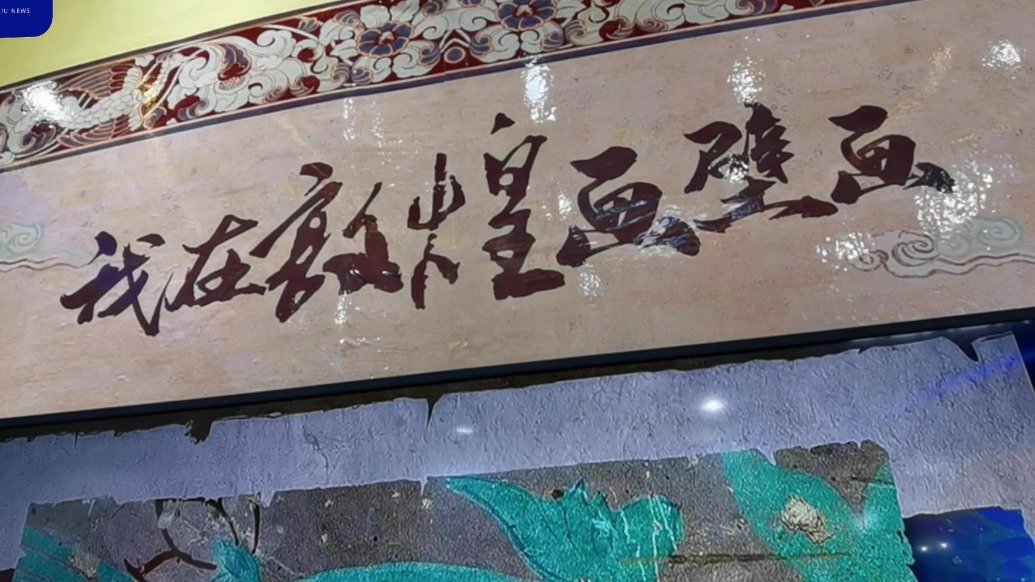 IU NEWS
我在敦煌画壁画